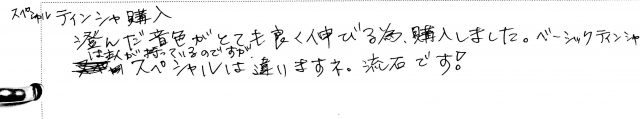 スペシャルティンシャ購入
澄んだ音色がとても良く伸びる為、購入しました。ベーシックティンシャ
は友人が持っているのですが
スペシャルは違いますネ。流石です!